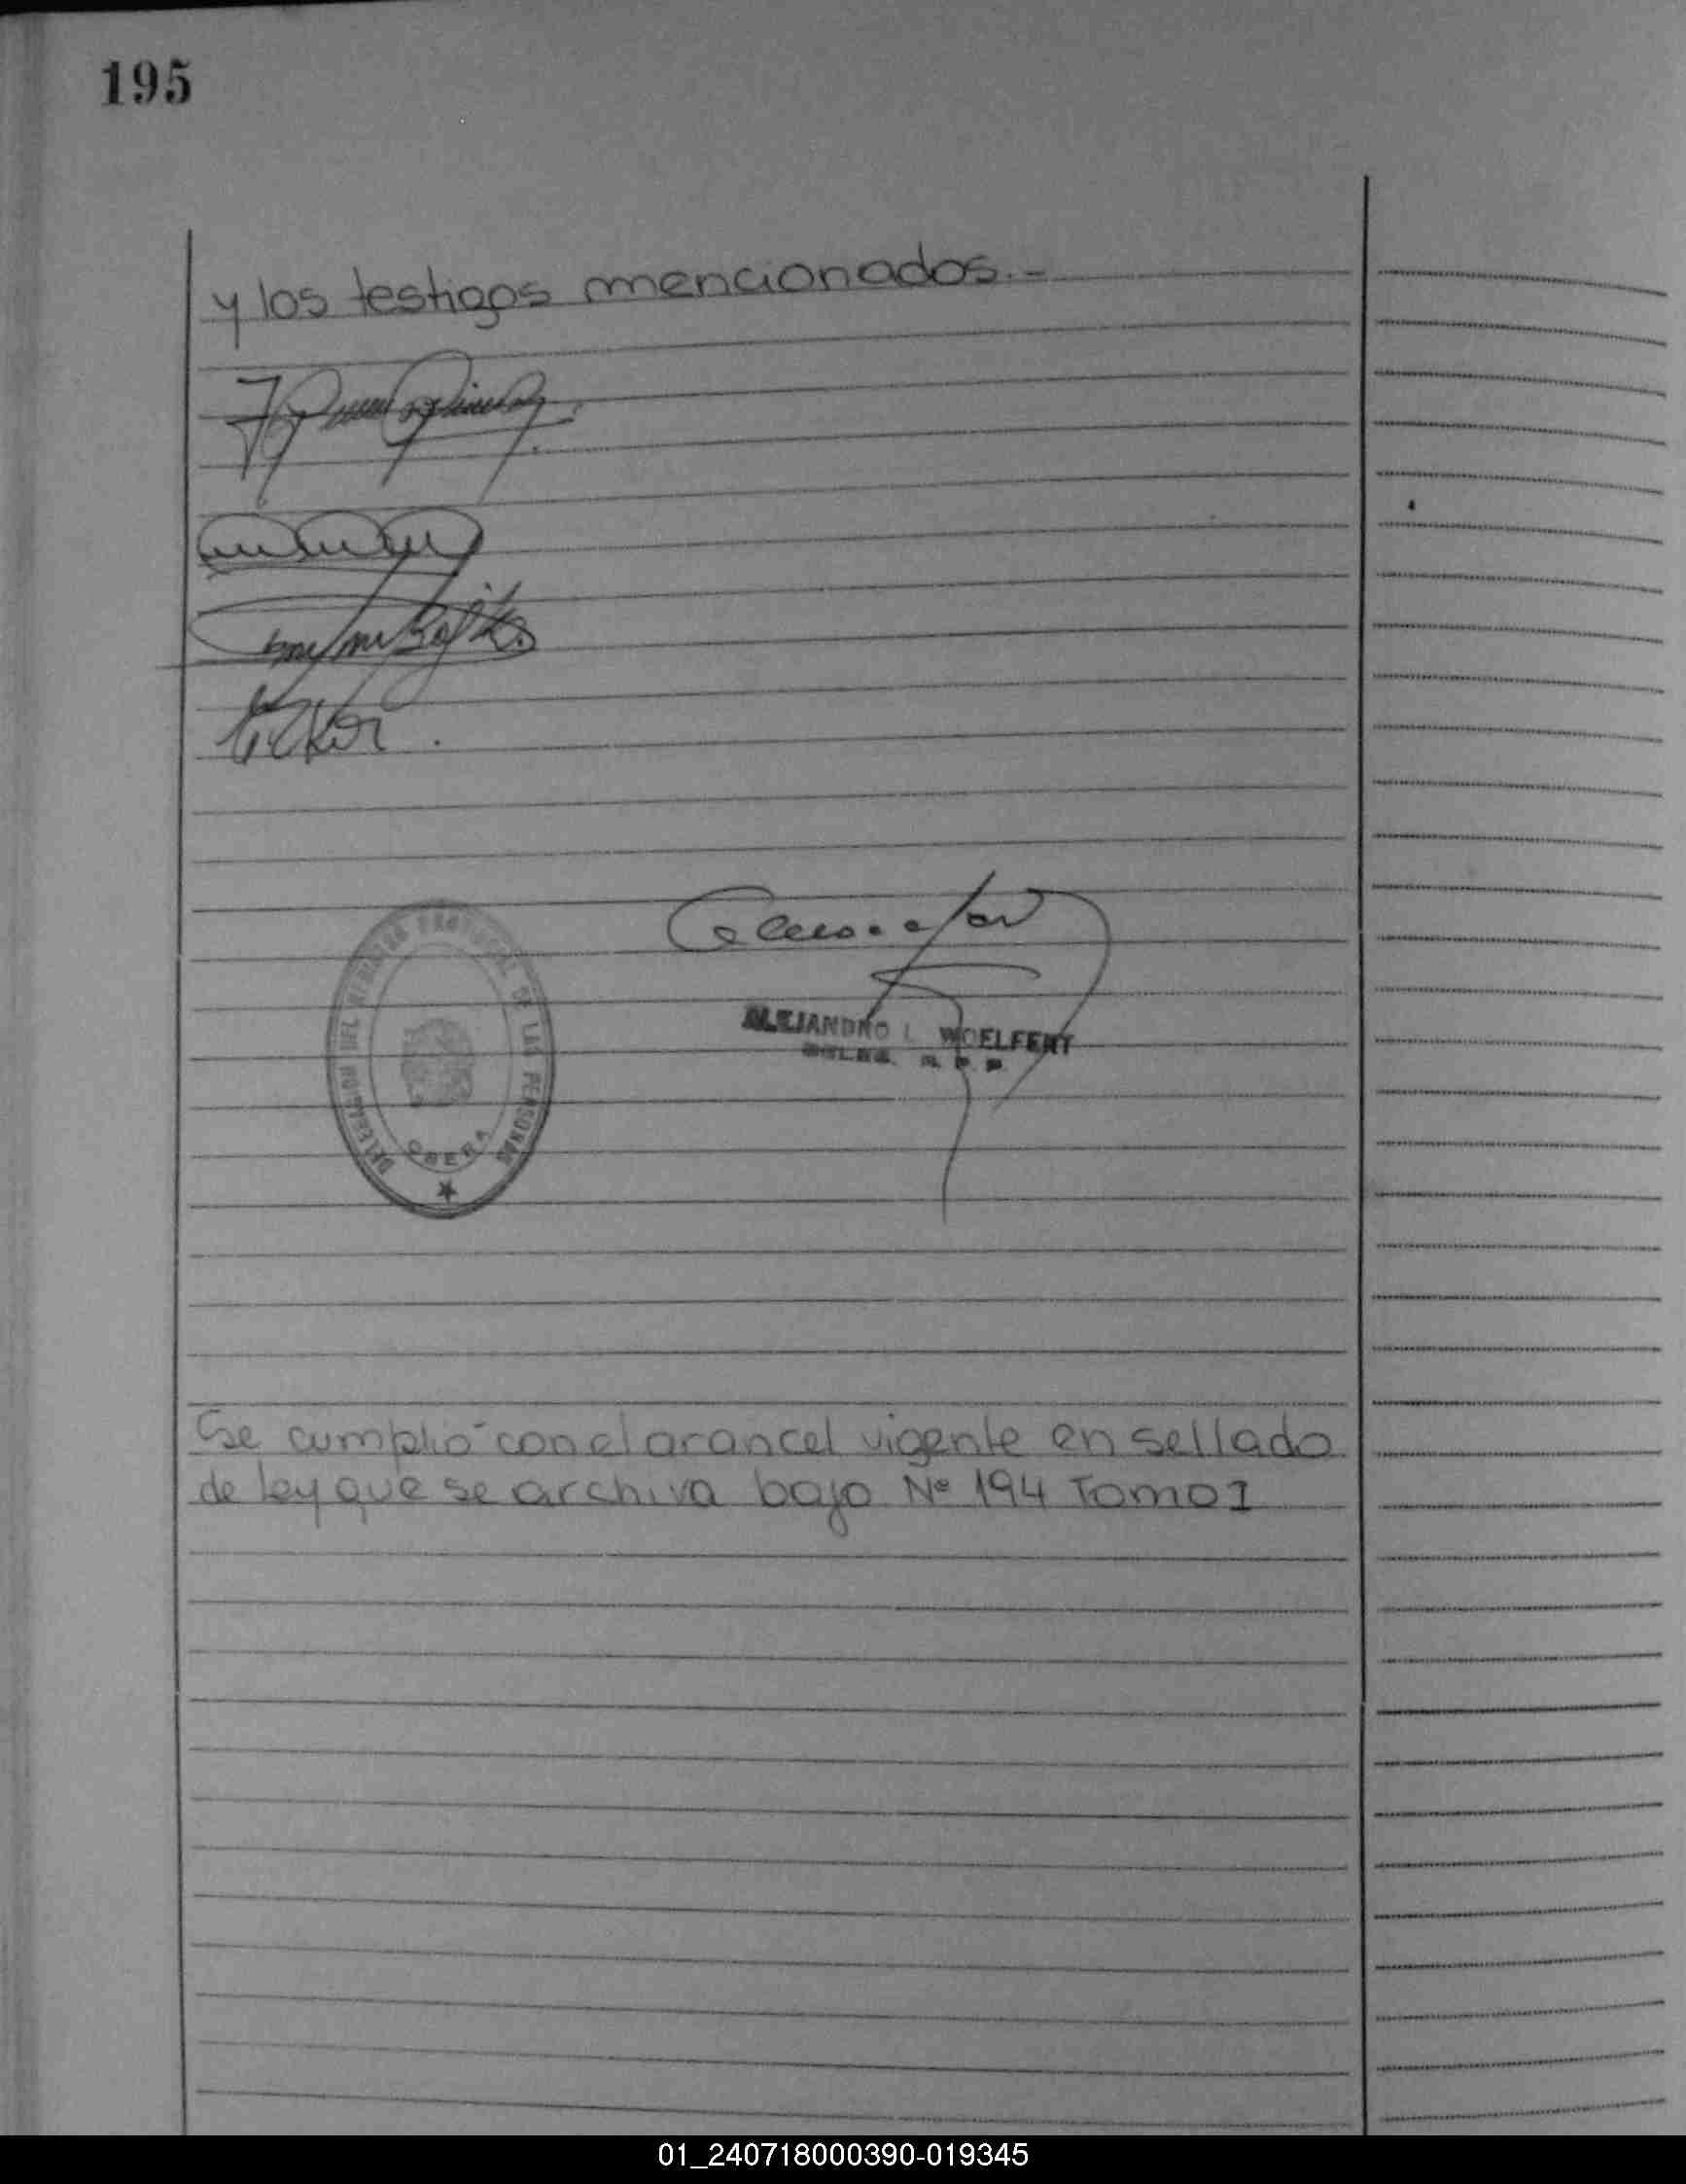 195
y los testigos mencionados.-
DELEGACION DEL REGISTRO PROVINCIAL DE LAS PERSONAS
OBERA
ALEJANDRO L. WOELFERT
Se cumplió con el arancel vigente en sellado
de ley que se archiva bajo Nº 194 Tomo I
01_240718000390-019345